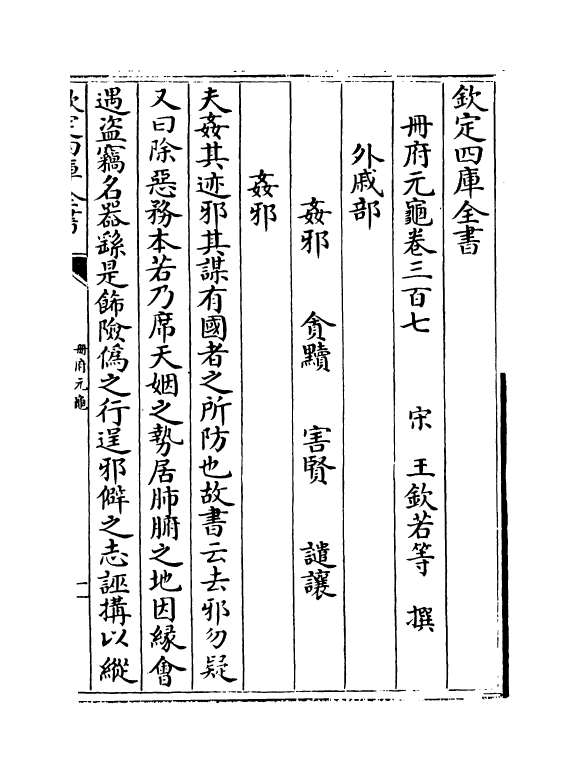 欽定四庫全書
冊府元龜卷三百七　　宋　王欽若等　撰
外戚部
姦邪　貪黷　害賢　譴讓
姦邪
夫姦其迹邪其謀有國者之所防也故書云去邪勿疑
又曰除惡務本若乃席天姻之勢居肺腑之地因緣會
遇盜竊名器繇是飾險偽之行逞邪僻之志誣搆以縱
欽定四庫全書
冊府元龜
一